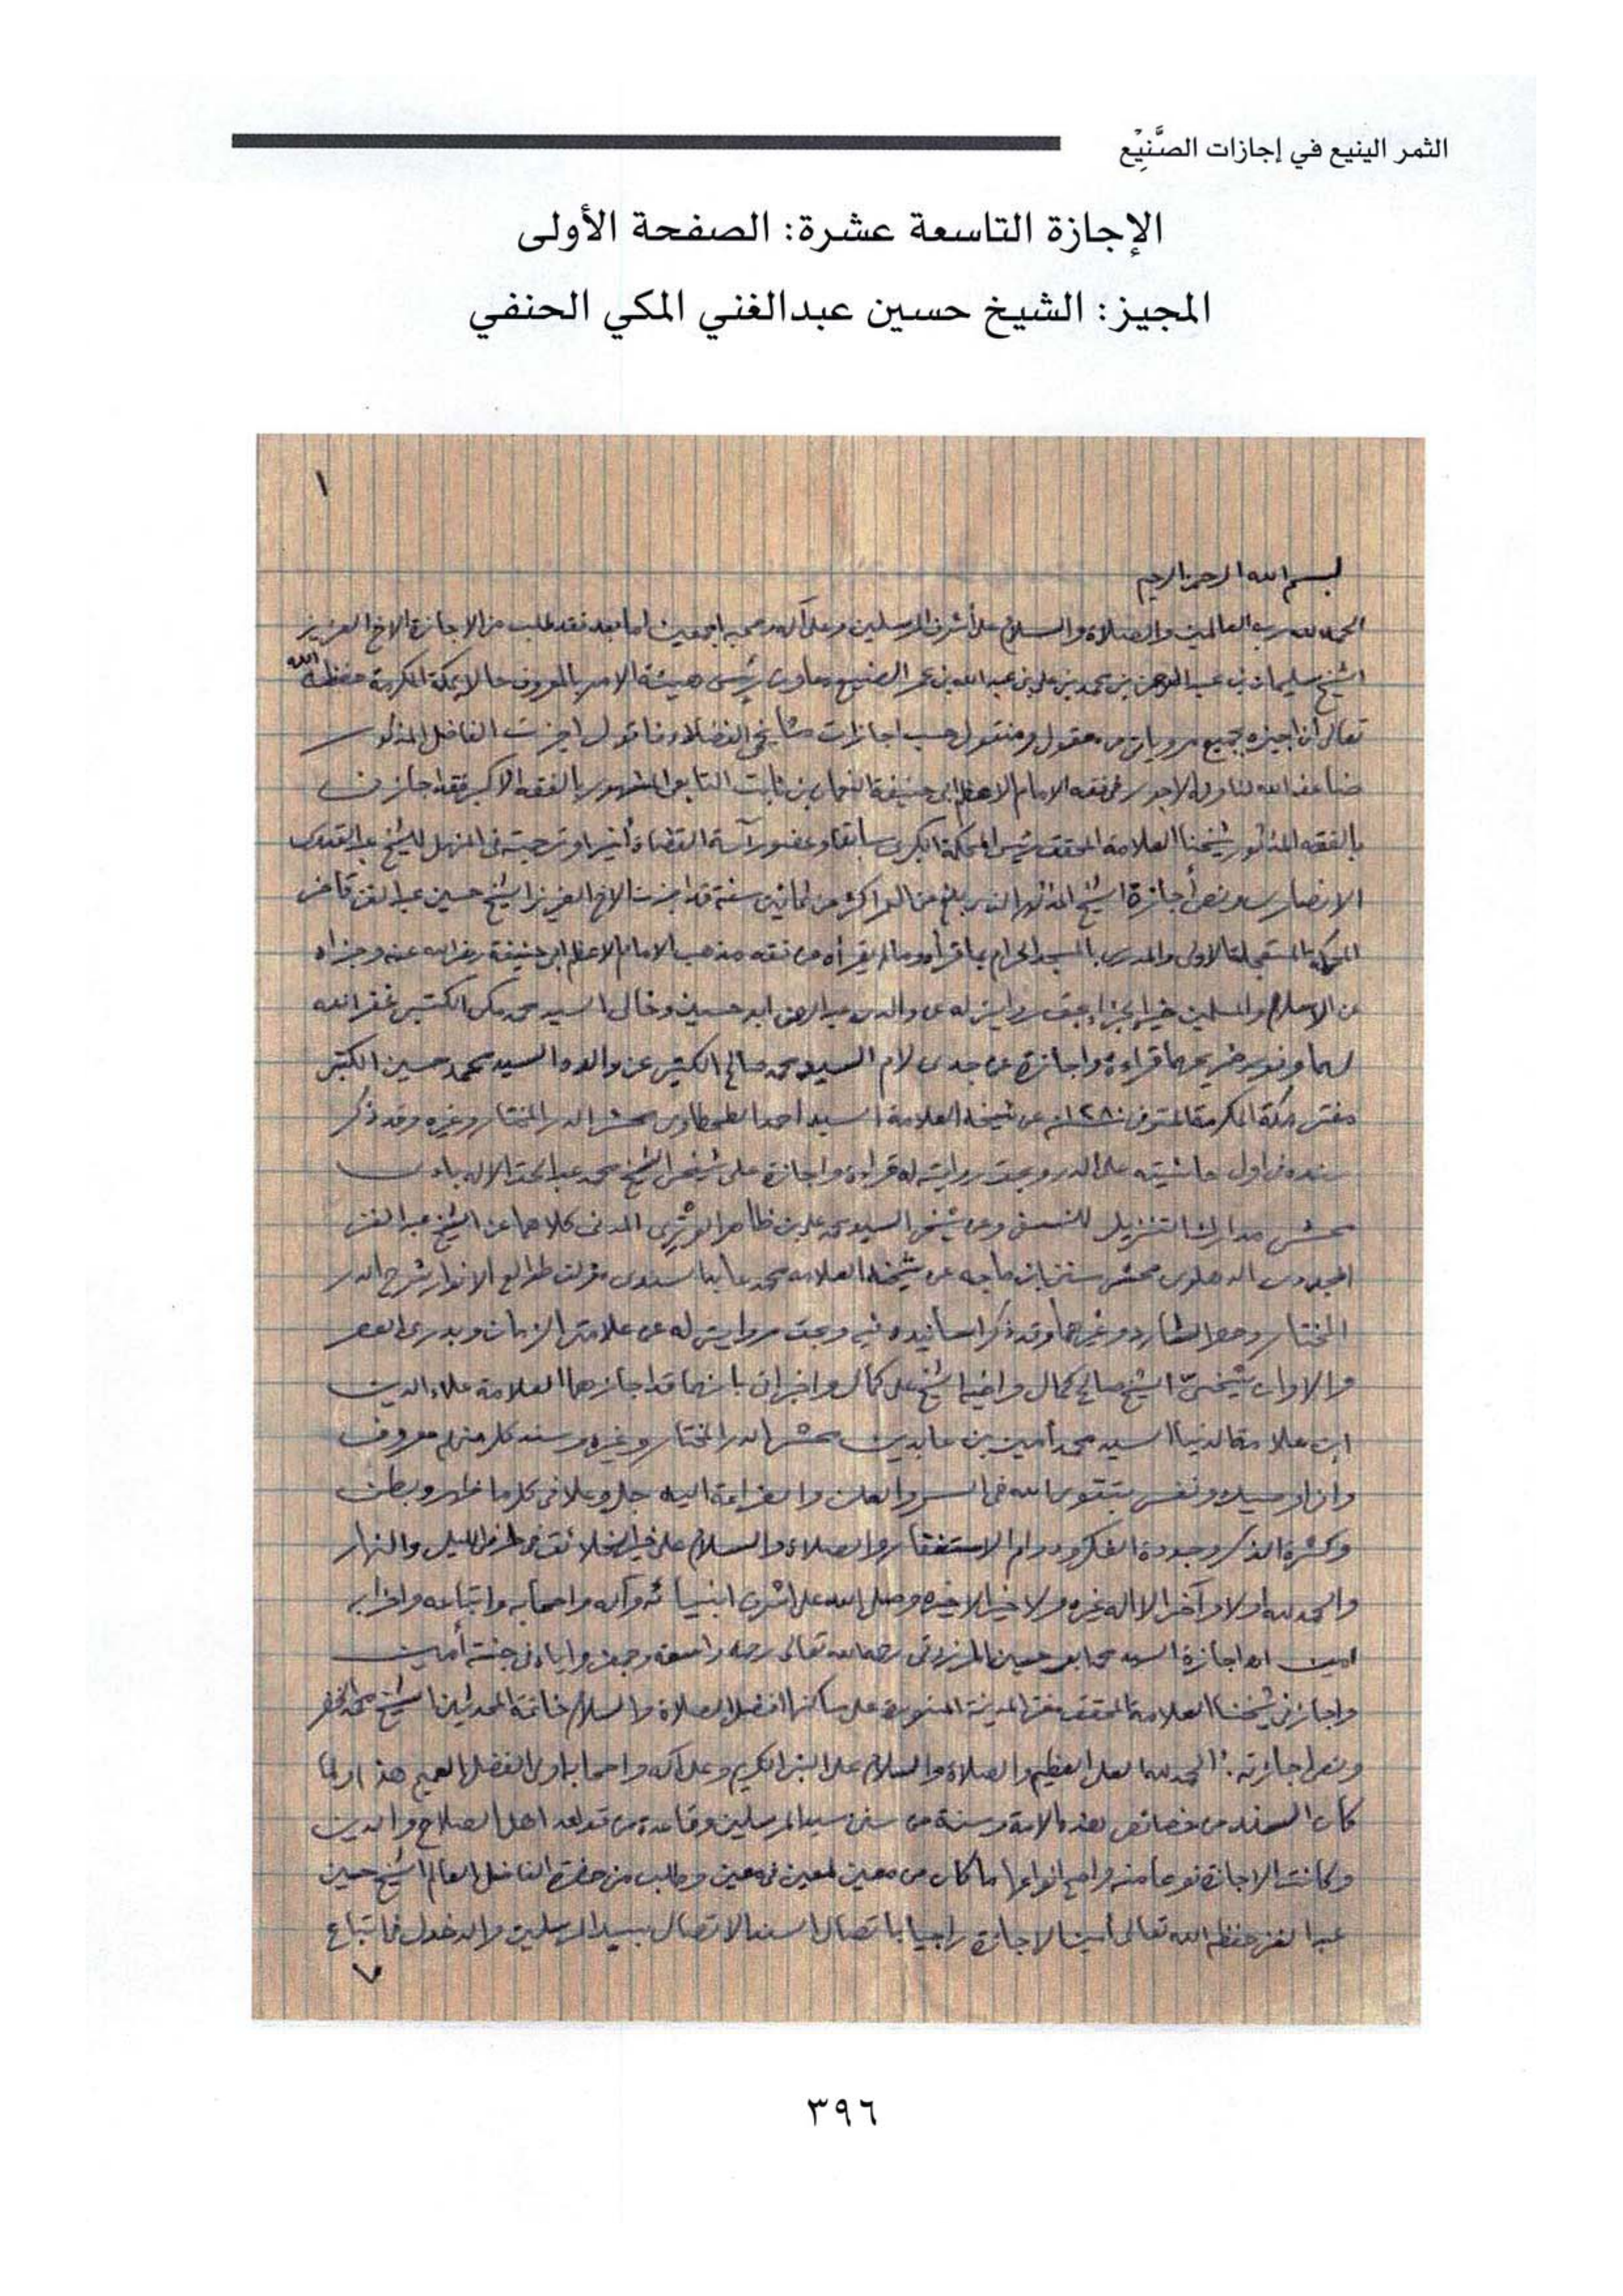 الثمر الينيع في إجازات الصَّنِيْع
الإجازة التاسعة عشرة: الصفحة الأولى
المجيز: الشيخ حسين عبدالغني المكي الحنفي
١
بسم الله الرحمن الرحيم
الحمد لله رب العالمين والصلاة والسلام على أشرف المرسلين وعلى آله وصحبه اجمعين اما بعد فقد طلب مني الاجازة الاخ العزيز
الشيخ سليمان بن عبد الرحمن بن محمد بن علي بن عبد الله بن الصنيع معاون رئيس هيئة الامر بالمعروف حالا بمكة المكرمة حفظه الله
تعالى ان اجيزه بجميع مروياتي من معقول ومنقول حسب اجازات مشايخي الفضلاء فاقول اجزت الفاضل المذكور
ضاعف الله لنا وله الاجور في فقه الامام الاعظم ابي حنيفة النعمان بن ثابت التابعي المشهور بالفقه الاكبر فقد اجازني
بالفقه شيخنا العلامة المحقق رئيس المحكمة الكبرى سابقا وعضو رآسة القضاة أخيرا وترجمته في المنهل للشيخ عبد القدوس
الانصاري ونص أجازة الشيخ من العمر اكثر من ثمانين سنة قد اجزت الاخ العزيز الشيخ حسين عبد الغني قاضي
المستعجلة الاولى والمدرس بالمسجد الحرام بما قرأه وما لم يقرأه من فقه مذهب الامام الاعظم ابي حنيفة رضي الله عنه وجزاه
عن الاسلام والمسلمين خير الجزاء بحق روايتي له عن والدي عبد الرحمن ابو حسين وخالي السيد محمد مكي الكتبي غفر الله
لهما ونور ضريحهما قراءة واجازة عن جدي لام السيد محمد صالح الكتبي عن والده السيد محمد حسين الكتبي
مفتي مكة المكرمة المتوفى ١٢٨٠ عن شيخه العلامة السيد احمد الطحطاوي محشي الدر المختار وغيره وقد ذكر
سنده في اول حاشيته على الدر وبحق روايتي له قراءة واجازة على شيخي الشيخ محمد عبد الحق الاله بادي
محشي مدارك التنزيل للنسفي وعن شيخي السيد محمد علي بن ظاهر الوتري المدني كلاهما عن الشيخ عبد الغني
المجددي الدهلوي محشي سنن ابن ماجه عن شيخه العلامة محمد عابد السندي مؤلف طوالع الانوار شرح الدر
المختار وحصر الشارد وغيرهما وقد ذكر اسانيده فيه وبحق روايتي له عن علامتي الزمان وبدري العصر
والاوان شيخيّ الشيخ صالح كمال واخيه الشيخ علي كمال واخبراني بانهما قد اجازهما العلامة علاء الدين
ابن علامة الدنيا السيد محمد أمين بن عابدين محشي الدر المختار وغيره وسند كل منهم معروف
واني اوصيه ونفسي بتقوى الله في السر والعلن والضراعة اليه جل وعلا في كل ما ظهر وبطن
وكثرة الذكر وجودة الفكر ودوام الاستغفار والصلاة والسلام على خير الخلائق في طرفي الليل والنهار
والحمد لله اولا وآخرا لا اله غيره ولا خير الا خيره وصلى الله على اشرف انبيائه وآله واصحابه واتباعه واحزابه
امين اهـ اجازة السيد محمد ابو حسين المرزوقي رحمه الله تعالى رحمة واسعة وجمعني واياه في جنته أمين
واجازني شيخنا العلامة المحقق مفتي المدينة المنورة على ساكنها افضل الصلاة والسلام خاتمة المحدثين الشيخ محمد الخضر
ونص اجازته: الحمد لله العلي العظيم والصلاة والسلام على النبي الكريم وعلى آله واصحابه اولي الفضل العميم هذا ولما
كان السند من خصائص هذه الامة وسنة من سنن سيد المرسلين وقاعدة من قواعد اهل الصلاح والدين
وكانت الاجازة نوعا منه واصح انواعها ما كان من معين لمعين في معين وطلب من حضرة الفاضل العالم الشيخ حسين
عبد الغني حفظه الله تعالى الاجازة راجيا باتصال السند الاتصال بسيد المرسلين والدخول في اتباع
٣٩٦